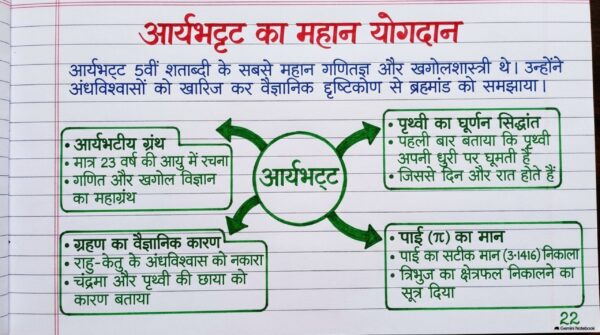 आर्यभट्ट का महान योगदान
आर्यभट्ट 5वीं शताब्दी के सबसे महान गणितज्ञ और खगोलशास्त्री थे। उन्होंने
अंधविश्वासों को खारिज कर वैज्ञानिक दृष्टिकोण से ब्रह्मांड को समझाया।
• आर्यभटीय ग्रंथ
• मात्र 23 वर्ष की आयु में रचना
• गणित और खगोल विज्ञान
का महाग्रंथ
• पृथ्वी का घूर्णन सिद्धांत
• पहली बार बताया कि पृथ्वी
अपनी धुरी पर घूमती है
• जिससे दिन और रात होते हैं
आर्यभट्ट
• ग्रहण का वैज्ञानिक कारण
• राहु-केतु के अंधविश्वास को नकारा
• चंद्रमा और पृथ्वी की छाया को
कारण बताया
• पाई (π) का मान
• पाई का सटीक मान (3·1416) निकाला
• त्रिभुज का क्षेत्रफल निकालने का
सूत्र दिया
22
Gemini Notebook